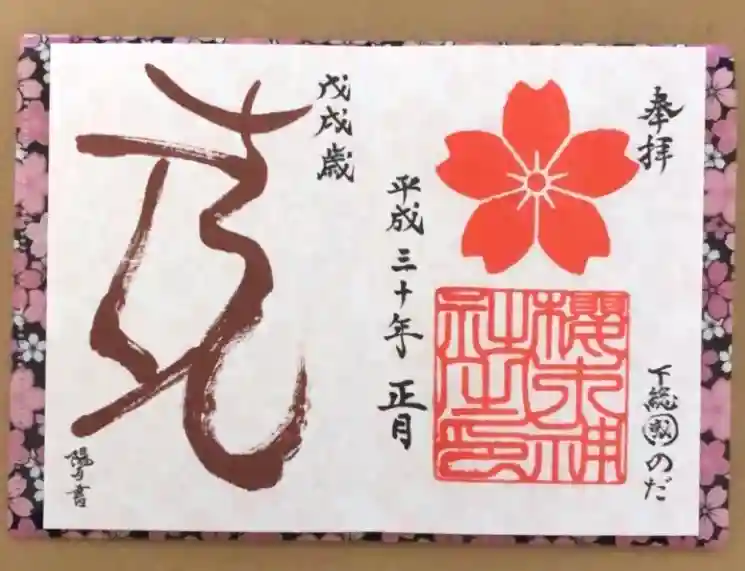 奉拝
下総のだ
櫻木神
社之印
平成三十年 正月
戊戌歳